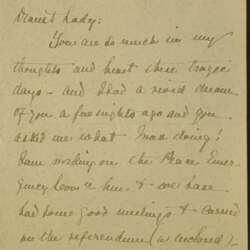 Dearest Lady:
You are so much in my
thoughts and heart these tragic
days - and I had a vivid dream
of you a few nights ago and you
asked me what I was doing!
I am working on the Peace Emer-
gency here & we have
had some good meetings & carried
on the referendum (as enclosed)